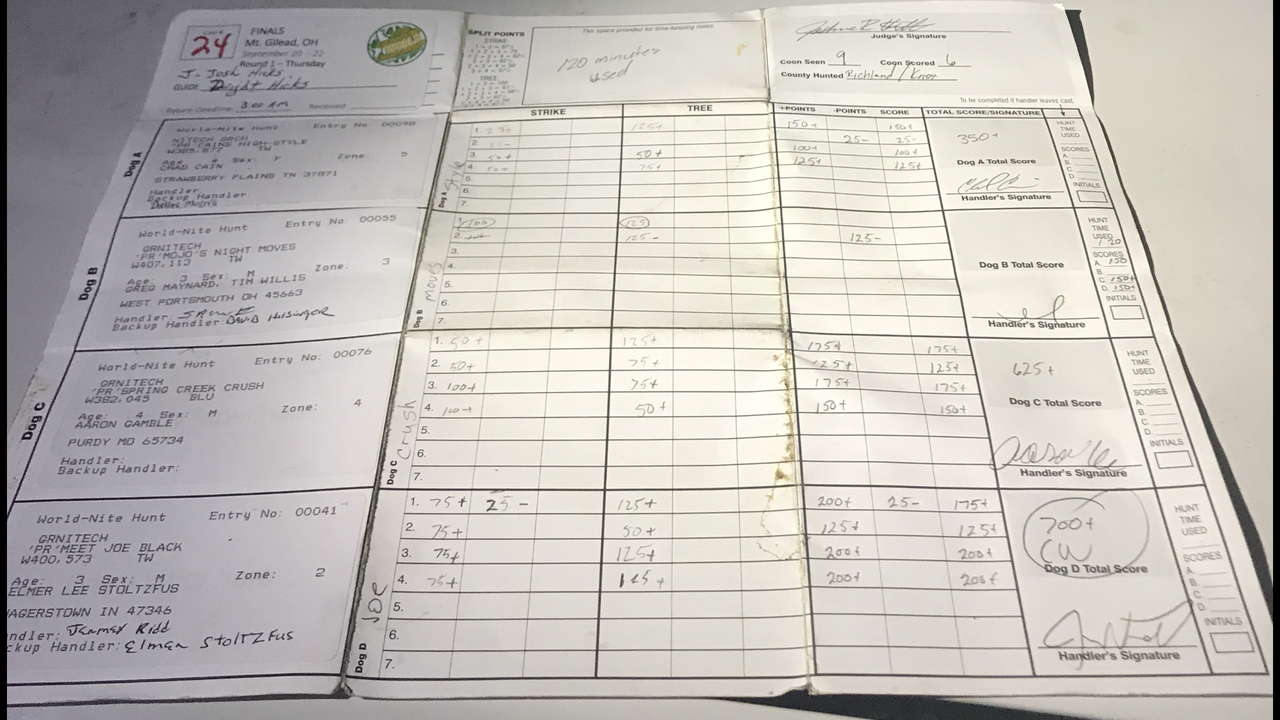 24
FINALS
Mt. Gilead, OH
September 20 - 22
Round 1 - Thursday
J- Josh Hicks
GUIDE Dwight Hicks
Return Deadline: 3:00 AM Received
SPLIT POINTS
STRIKE:
TREE:
This space provided for time-keeping notes
120 minutes
used
Judge's Signature
Coon Seen 9 Coon Scored 6
County Hunted Richland / Knox
To be completed if handler leaves cast.
STRIKE TREE +POINTS -POINTS SCORE TOTAL SCORE/SIGNATURE
Dog A
World-Nite Hunt Entry No: 00098
'PR'CAINS HIGH-STYLE
TW
Age: 4 Sex: F Zone: 5
CHAD CAIN
STRAWBERRY PLAINS TN 37871
Handler:
Backup Handler:
Dog A Style
1. 25+ 125+ 150+ 150+
2. 25- 25- 25-
3. 50+ 50+ 100+ 100+
4. 50+ 75+ 125+ 125+
5.
6.
7.
350+
Dog A Total Score
Handler's Signature
HUNT
TIME
USED
SCORES
A.
B.
C.
D.
INITIALS
Dog B
World-Nite Hunt Entry No: 00055
GRNITECH
'PR'MOJO'S NIGHT MOVES
W407,113 TW
Age: 3 Sex: M Zone: 3
GREG MAYNARD, TIM WILLIS
WEST PORTSMOUTH OH 45663
Handler: Same
Backup Handler: David Huisinger
Dog B Moves
1. 100 125
2. 125- 125-
3.
4.
5.
6.
7.
Dog B Total Score
Handler's Signature
HUNT
TIME
USED
1 20
SCORES
A. 150
B.
C. 150+
D. 150+
INITIALS
Dog C
World-Nite Hunt Entry No: 00076
GRNITECH
'PR'SPRING CREEK CRUSH
W382,045 BLU
Age: 4 Sex: M Zone: 4
AARON GAMBLE
PURDY MO 65734
Handler:
Backup Handler:
Dog C Crush
1. 50+ 125+ 175+ 175+
2. 50+ 75+ 125+ 125+
3. 100+ 75+ 175+ 175+
4. 100+ 50+ 150+ 150+
5.
6.
7.
625+
Dog C Total Score
Handler's Signature
HUNT
TIME
USED
SCORES
A.
B.
C.
D.
INITIALS
World-Nite Hunt Entry No: 00041
GRNITECH
'PR'MEET JOE BLACK
W400,573 TW
Age: 3 Sex: M Zone: 2
ELMER LEE STOLTZFUS
HAGERSTOWN IN 47346
ndler: Jammey Kidd
ckup Handler: Elmer Stoltzfus
Dog D Joe
1. 75+ 25- 125+ 200+ 25- 175+
2. 75+ 50+ 125+ 125+
3. 75+ 125+ 200+ 200+
4. 75+ 125+ 200+ 200+
5.
6.
7.
700+
CW
Dog D Total Score
Handler's Signature
HUNT
TIME
USED
SCORES
A.
B.
C.
D.
INITIALS